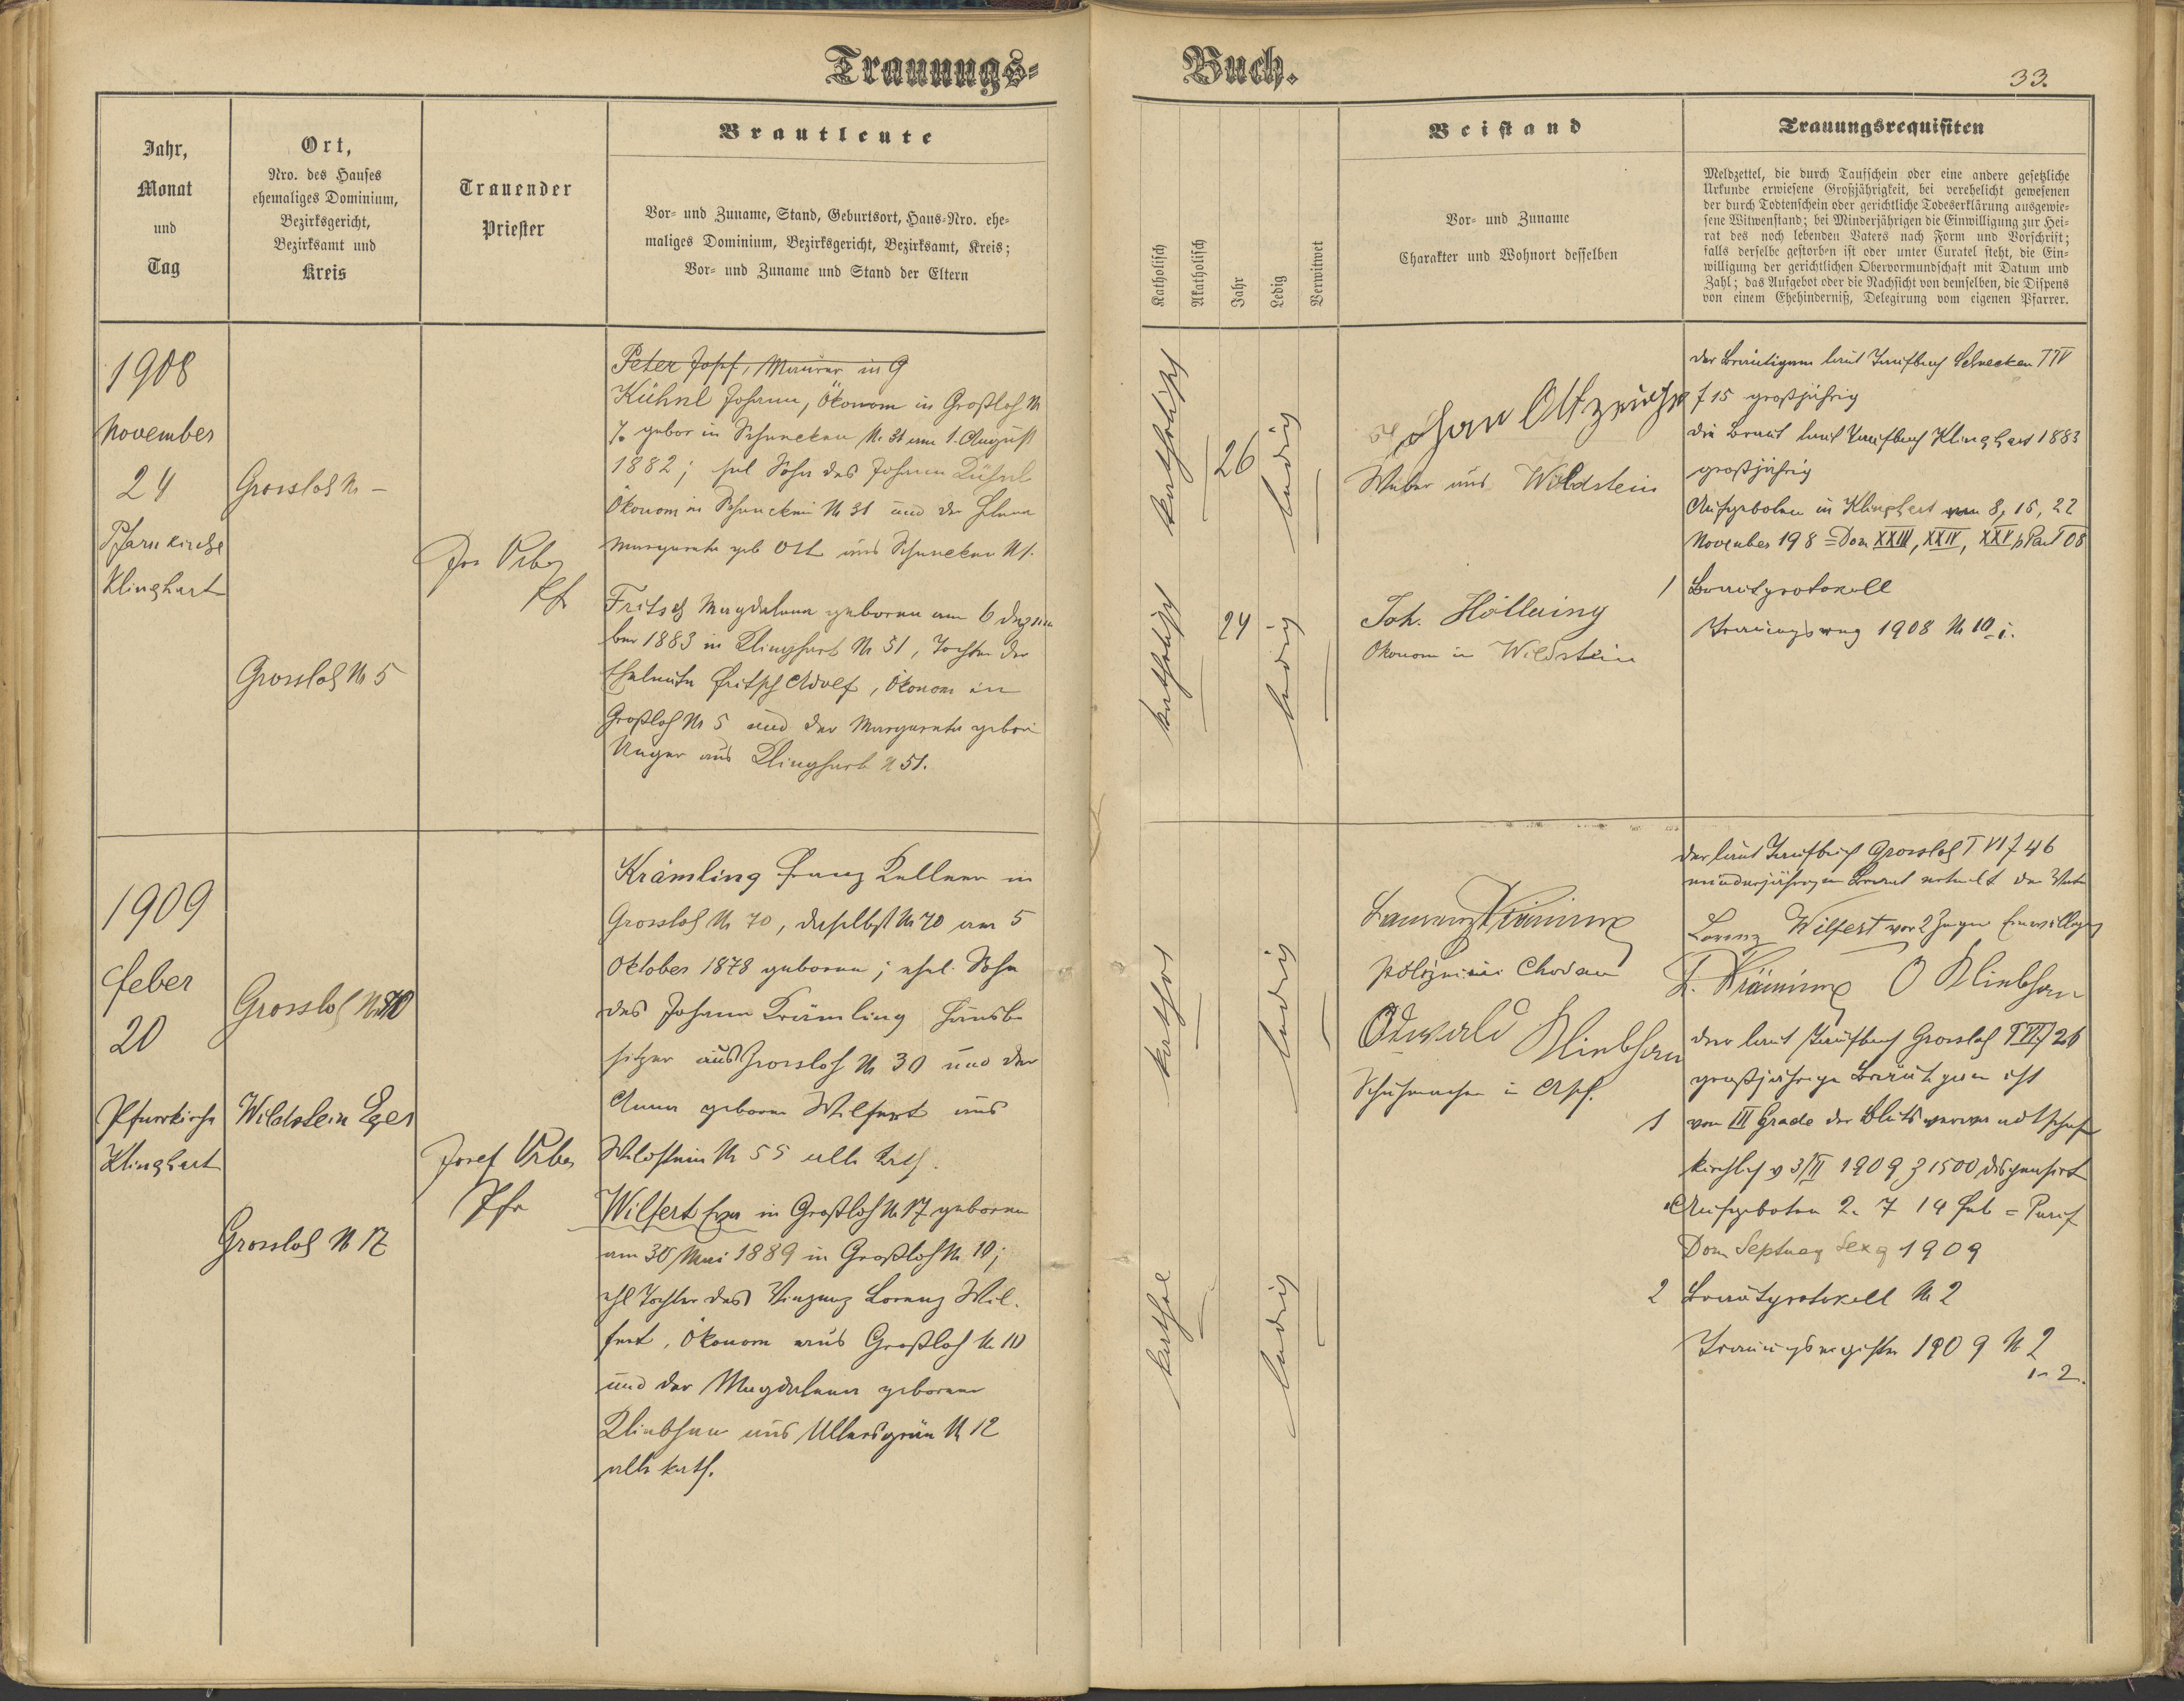 Trauungs-
Buch.
33.
Jahr,
Monat
und
Tag
Ort,
Nro. des Hauses
ehemaliges Dominium,
Bezirksgericht,
Bezirksamt und
Kreis
Trauender
Priester
Brautleute
Vor- und Zuname, Stand, Geburtsort, Haus-Nro. ehe-
maliges Dominium, Bezirksgericht, Bezirksamt, Kreis;
Vor- und Zuname und Stand der Eltern
Katholisch
Akatholisch
Jahr
Ledig
Verwitwet
Beistand
Vor- und Zuname
Charakter und Wohnort desselben
Trauungsrequisiten
Meldzettel, die durch Taufschein oder eine andere gesetzliche
Urkunde erwiesene Großjährigkeit, bei verehelicht gewesenen
der durch Todtenschein oder gerichtliche Todeserklärung ausgewie-
sene Witwenstand; bei Minderjährigen die Einwilligung zur Hei-
rat des noch lebenden Vaters nach Form und Vorschrift;
falls derselbe gestorben ist oder unter Curatel steht, die Ein-
willigung der gerichtlichen Obervormundschaft mit Datum und
Zahl; das Aufgebot oder die Nachsicht von demselben, die Dispens
von einem Ehehinderniß, Delegirung vom eigenen Pfarrer.
1908
November
24
Pfarrkirche
Klinghart
Grossloh N –
Grossloh N 5
Jos
Pf
Peter Josef, Maurer in G
Kühnl Johann, Ökonom in Großloh N
% gebor in Schnecken N. 31 am 1. August
1882; ehl Sohn des Johann Kühnl
Ökonom in Schnecken N 31 und der
Margareta geb Ott aus Schnecken N
Fritsch Magdalena geboren am 6 Dezem
ber 1883 in Klinghart N 51, Tochter der
Eheleute Fritsch Adolf, Ökonom in
Großloh N 5 und der Margareta gebor
Unger aus Klinghart N 51.
katholisch
26
ledig
katholisch
24
ledig
Johann
Weber aus Wildstein
Joh.
Ökonom in Wildstein
der Bräutigam laut Taufbuch Schnecken T IV
f 15 großjährig
die Braut laut Taufbuch Klinghart 1883
großjährig
Aufgeboten in Klinghart 8, 15, 22
November 198 = Dom XXIII, XXIV, XXV p Pent 08
1 Brautprotokoll
1908 N 10
1909
Feber
20
Pfarrkirche
Klinghart
Grossloh N 70
Wildstein Eger
Grossloh N 17
Josef
Pfr
Krämling Franz Kellner in
Grossloh N 70, daselbst N 70 am 5
Oktober 1878 geboren; ehel. Sohn
des Johann Krämling Hausbe
sitzer aus Grossloh N 30 und der
Anna geboren Wilfert aus
Wildstein N 55 alle kath.
Wilfert Eva in Großloh N 17 geboren
am 30 Mai 1889 in Großloh N 10;
ehl Tochter des Vinzenz Lorenz Wil-
fert, Ökonom aus Großloh N 10
und der Magdalena geborene
Kliebhan aus Ullersgrün N 12
alle kath.
kathol
ledig
kathol
ledig
in Chodau
Kliebhan
Schuhmacher in Asch.
der laut Taufbuch Grossloh T VI f 46
minderjährigen Braut erteilt der Vater
Lorenz Wilfert vor 2 Zeugen Einwilligung
O Kliebhan
der laut Taufbuch Grossloh T VI f 26
großjährige Bräutigam ist
1 vom III Grade der Blutsverwandtschaft
kirchlich v 3/II 1909 z 1500 dispensirt
Aufgeboten 2. 7 14 Feb = Purif
Dom Septuag Sexg 1909
2 Brautprotokoll N 2
Trauungsregister 1909 N 2
1–2.